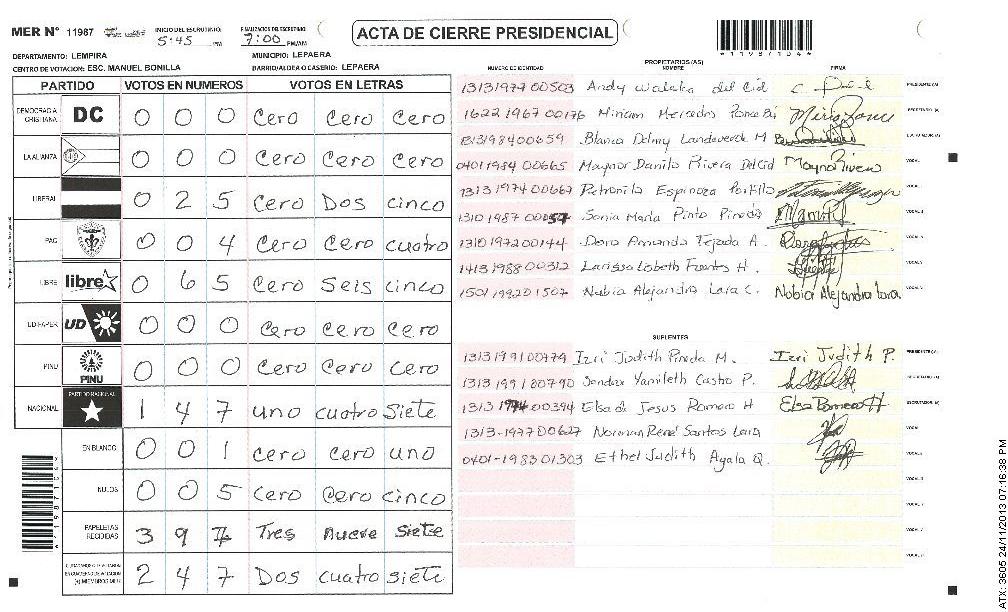 MER Nº 11987 INICIO DEL ESCRUTINIO: 5:45 PM FINALIZACION DEL ESCRUTINIO 7:00 PM/AM ACTA DE CIERRE PRESIDENCIAL
DEPARTAMENTO: LEMPIRA MUNICIPIO: LEPAERA
CENTRO DE VOTACION: ESC. MANUEL BONILLA BARRIO/ALDEA O CASERIO: LEPAERA
PARTIDO VOTOS EN NUMEROS VOTOS EN LETRAS
DEMOCRACIA CRISTIANA DC 0 0 0 Cero Cero Cero
LA ALIANZA 0 0 0 Cero Cero Cero
LIBERAL 0 2 5 Cero Dos cinco
PAC 0 0 4 Cero Cero cuatro
LIBRE libre 0 6 5 Cero Seis cinco
UD-FAPER UD 0 0 0 Cero Cero Cero
PINU PINU 0 0 0 Cero Cero Cero
NACIONAL PARTIDO NACIONAL 1 4 7 uno cuatro siete
EN BLANCO 0 0 1 cero cero uno
NULOS 0 0 5 Cero Cero cinco
PAPELETAS RECIBIDAS 3 9 7 Tres nueve siete
2 4 7 Dos cuatro siete
PROPIETARIOS (AS)
NUMERO DE IDENTIDAD NOMBRE FIRMA
1313197700503 Andy Walata del Cid PRESIDENTE (A)
1622196700176 Miriam Mercedes Ponce Miriam Ponce SECRETARIO (A)
Blanca Delmy Landaverde M ESCRUTADOR (A)
0401198400665 Maynor Danilo Rivera Del Cid Maynor Rivera VOCAL
1313197400667 Petronila Espinoza Portillo
1310198700057 Sonia Maria Pinto Pineda
1310197200144 Dora Amanda Tejada A.
1413198800312 Larissa Lizbeth Fuentes H.
1501199201507 Nubia Alejandra Lara C. Nubia Alejandra Lara
SUPLENTES
1313199100774 Izri Judith Pineda M. Izri Judith P. PRESIDENTE (A)
1313199100790 Yamileth Castro P. SECRETARIO (A)
1313197400394 Elsa de Jesus Romero H Elsa Romero H ESCRUTADOR (A)
1313-197700627 Norman René Santos Lara
0401-198301303 Ethel Judith Ayala Q.
*11987104*
ATX: 3605 24/11/2013 07:16:38 PM